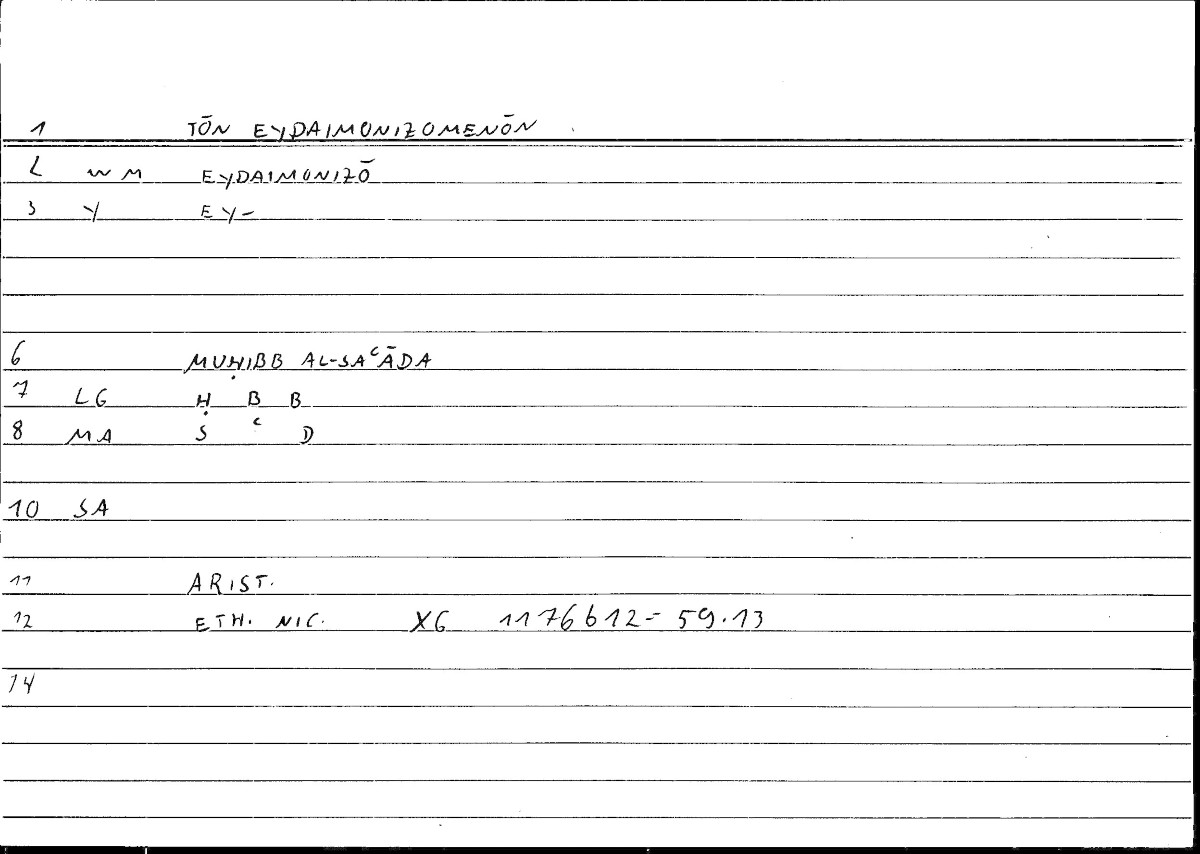 1 TŌN EYDAIMONIZOMENŌN
2 WM EYDAIMONIZŌ
3 Y EY-
6 MUḤIBB AL-SAᶜĀDA
7 LG Ḥ B B
8 MA S ᶜ D
10 SA
11 ARIST.
12 ETH. NIC. X6 1176b12 = 59.13
14